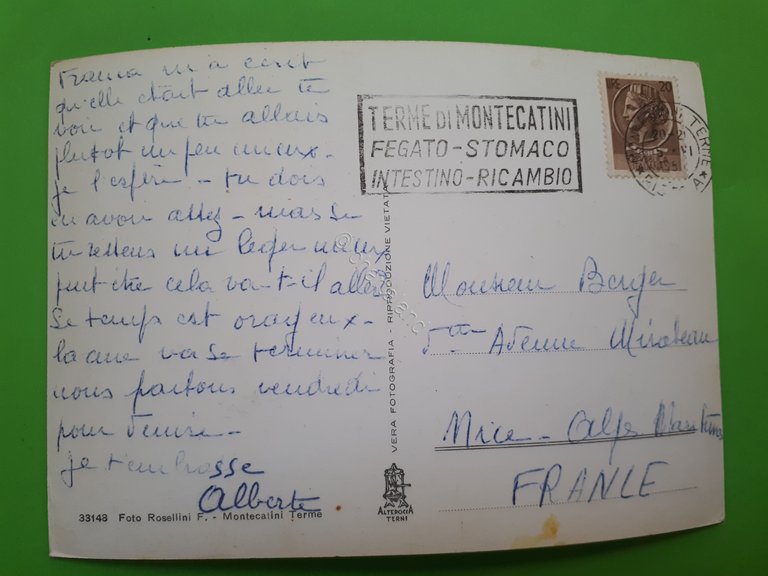 Franca m'a écrit
qu'elle était allée te
voir et que tu allais
plutôt un peu mieux -
je l'espère - tu dois
en avoir assez - mais si
tu ressens un léger mieux
peut être cela va-t-il aller
Le temps est orageux -
la cure va se terminer
nous partons vendredi
pour Venise -
je t'embrasse
Alberte
33148 Foto Rosellini F. - Montecatini Terme
VERA FOTOGRAFIA - RIPRODUZIONE VIETATA
ALTEROCCA
TERNI
TERME DI MONTECATINI
FEGATO - STOMACO
INTESTINO - RICAMBIO
20
TERME
Monsieur Berger
Avenue Mirabeau
Nice - Alpes Maritimes
FRANCE